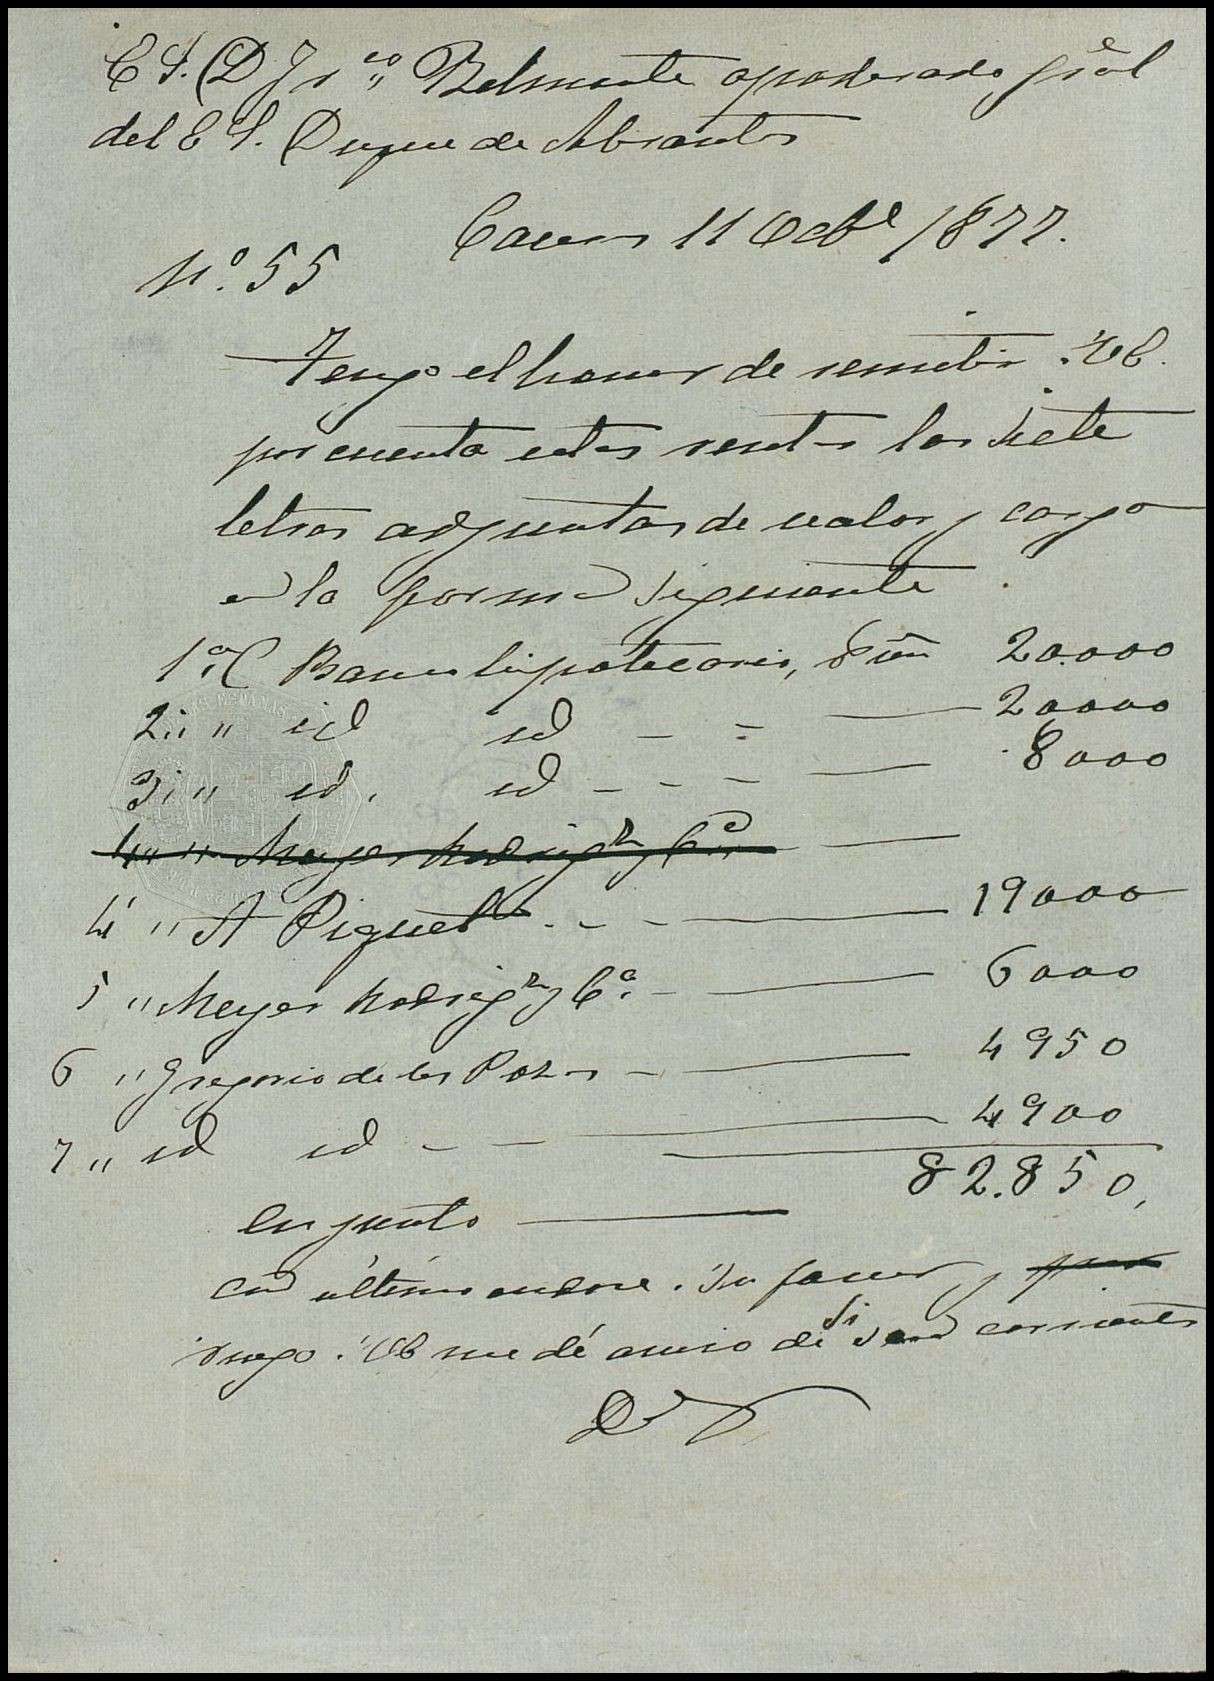 E S. D Fr.co Belmonte apoderado gral
del E S. Duque de Abrantes
Caceres 11 Octbe 1877.
Nº. 55
Tengo el honor de remitir á VE.
por cuenta estas rentas las siete
letras adjuntas de valor y cargo
en la forma siguiente
1ª C Banco hipotecario, 20.000
2ª " id id - = 20000
3ª " id. id - - - 8000
4ª " Meyer Rodrigz y Cª
4 " A Piquet . - - 19000
5 " Meyer Rodrigz y Cª. - 6000
6 " Gregorio de las Pozas - 4950
7 " id id - - 4900
82.850,
En junto
con último endose á su favor y por
ruego á VE me dé aviso de si son corrientes
D